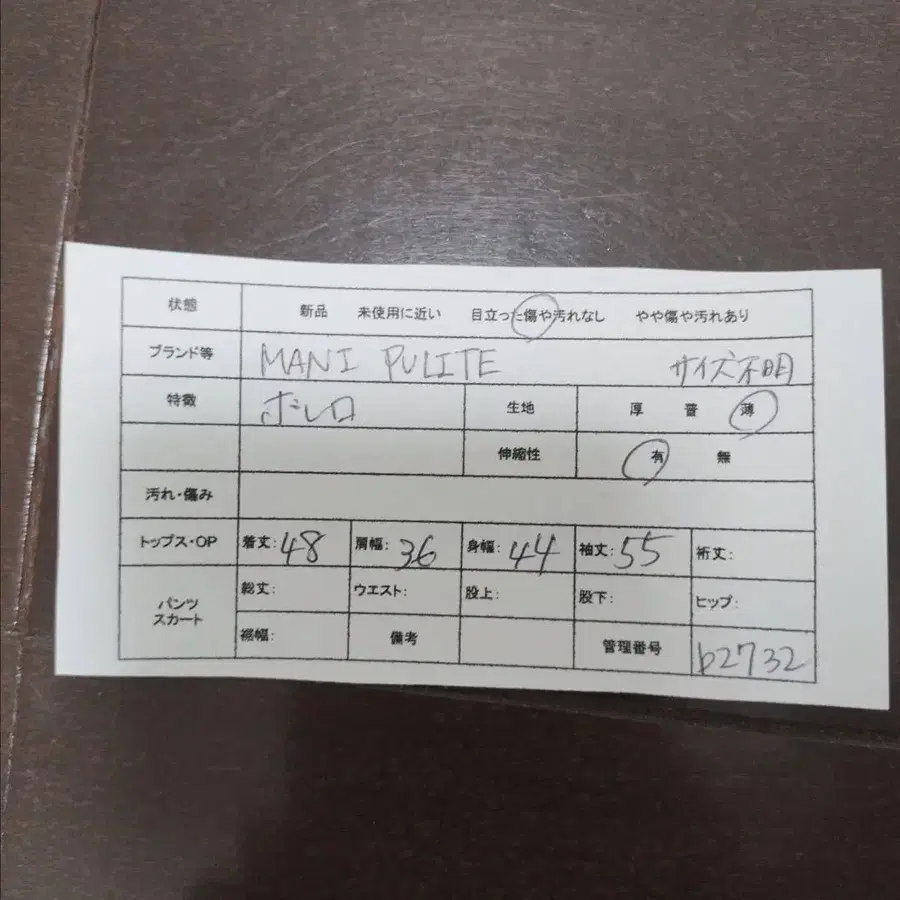 状態 新品 未使用に近い 目立った傷や汚れなし やや傷や汚れあり
ブランド等 MANI PULITE サイズ不明
特徴 ボレロ 生地 厚 普 薄
伸縮性 有 無
汚れ・傷み
トップス・OP 着丈:48 肩幅:36 身幅:44 袖丈:55 裄丈:
パンツ スカート 総丈: ウエスト: 股上: 股下: ヒップ:
裾幅: 備考 管理番号 b2732